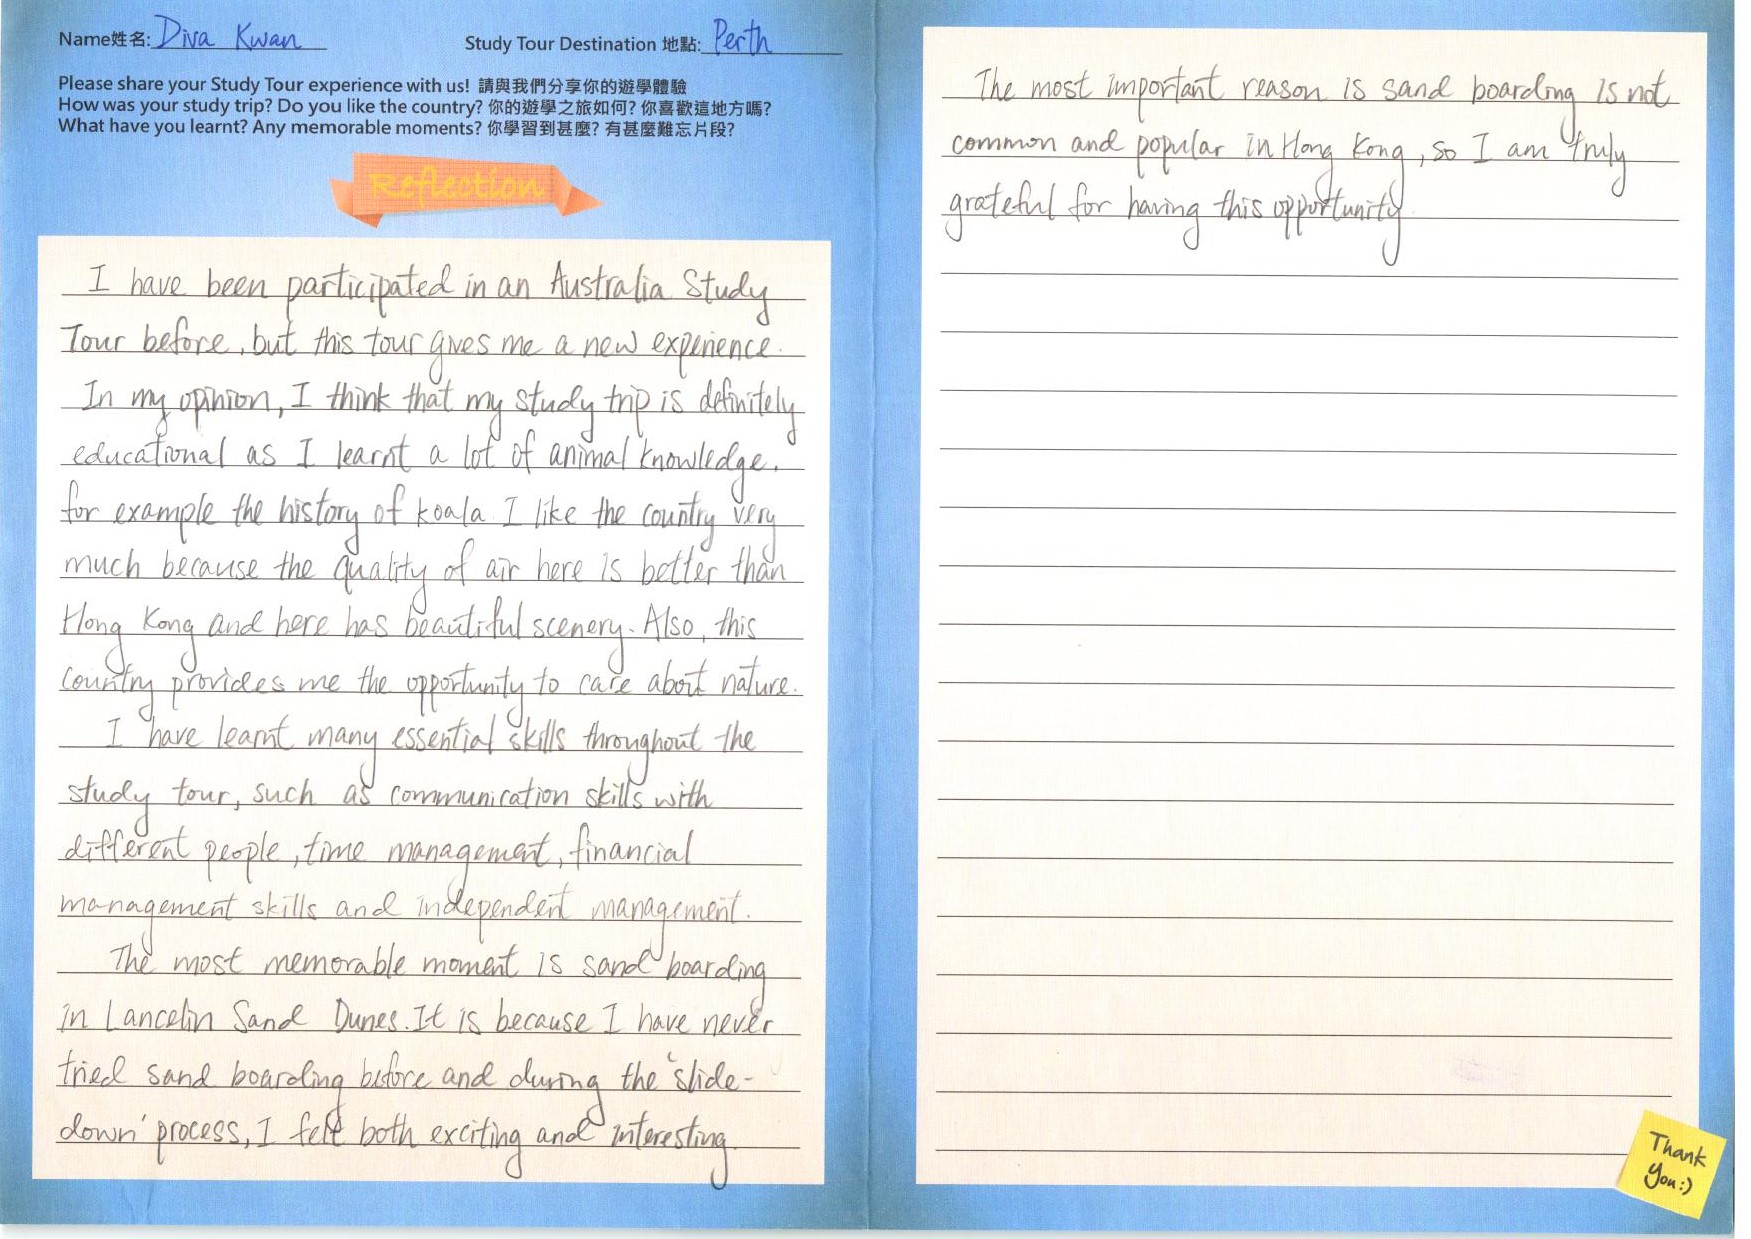 Name姓名: Diva Kwan
Study Tour Destination 地點: Perth
Please share your Study Tour experience with us! 請與我們分享你的遊學體驗
How was your study trip? Do you like the country? 你的遊學之旅如何? 你喜歡這地方嗎?
What have you learnt? Any memorable moments? 你學習到甚麼? 有甚麼難忘片段?
Reflection
I have been participated in an Australia Study
Tour before, but this tour gives me a new experience.
In my opinion, I think that my study trip is definitely
educational as I learnt a lot of animal knowledge,
for example the history of koala. I like the country very
much because the quality of air here is better than
Hong Kong and here has beautiful scenery. Also, this
country provides me the opportunity to care about nature.
I have learnt many essential skills throughout the
study tour, such as communication skills with
different people, time management, financial
management skills and independent management.
The most memorable moment is sand boarding
in Lancelin Sand Dunes. It is because I have never
tried sand boarding before and during the 'slide-
down' process, I felt both exciting and interesting.
The most important reason is sand boarding is not
common and popular in Hong Kong, so I am truly
grateful for having this opportunity.
Thank
you:)